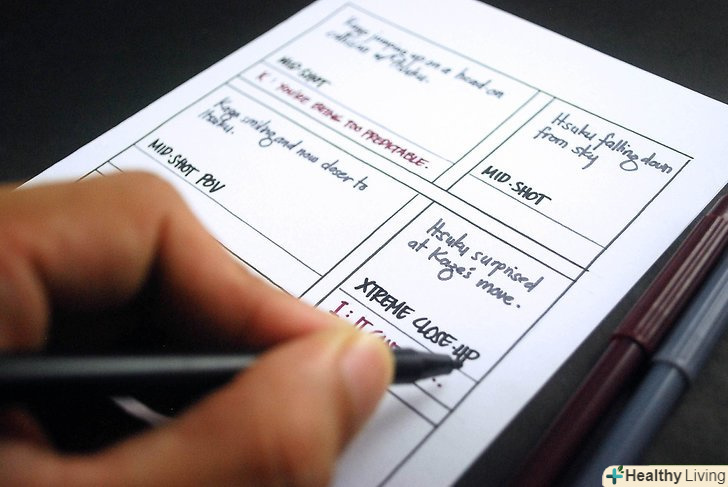 Kaze jumping up on a head on
collision w/ Itsuku.
MID-SHOT
K: YOU'RE BEING TOO PREDICTABLE.
Itsuku falling down
from sky
MID-SHOT
Kaze smiling and now closer to
Itsuku.
MID-SHOT POV
Itsuku surprised
at Kaze's move.
XTREME CLOSE-UP
I: IT
Healthy Living